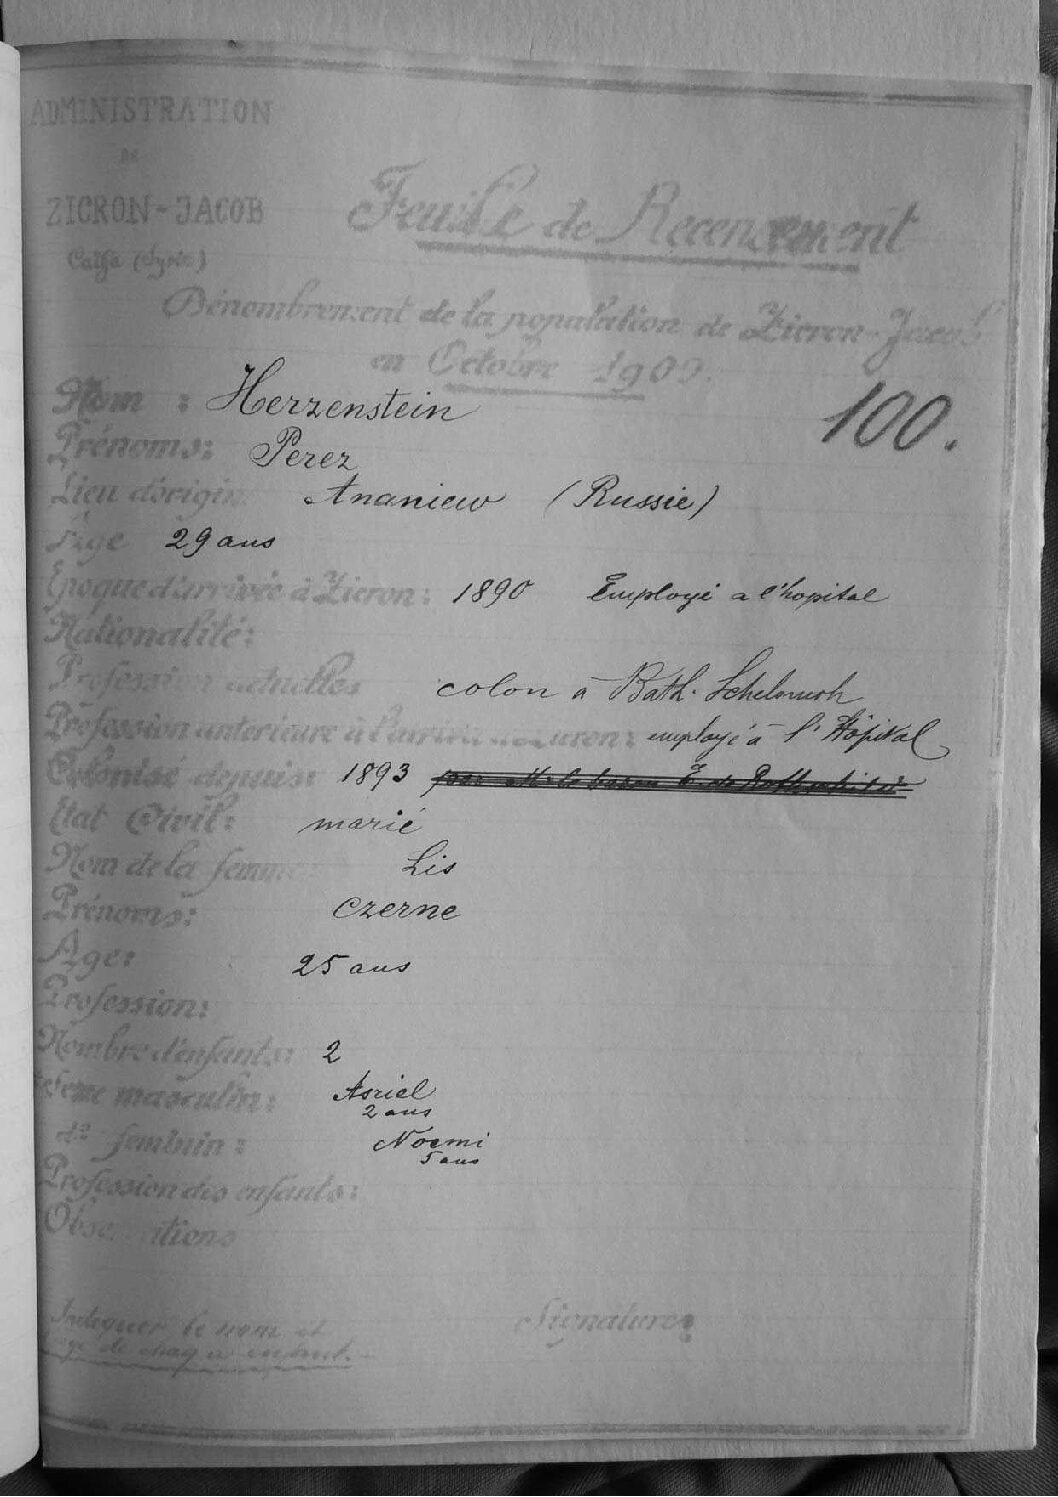 ADMINISTRATION
DE
ZICRON-JACOB
Caïfa (Syrie)
Feuille de Recensement
Dénombrement de la population de Zicron-Jacob
en Octobre 1900.
100.
Nom : Herzenstein
Prénoms: Perez
Lieu d'origine Ananiew (Russie)
Age 29 ans
Epoque d'arrivée à Zicron: 1890 Employé a l'hopital
Nationalité:
Profession actuelles colon à Bath. Schelomoh
Profession anterieure à l'arrivée à Zicron: employé à l'Hôpital
Colonisé depuis: 1893 par Mr le baron E. de Rothschild
Etat Civil: marié
Nom de la femme Lis
Prénoms: Czerne
Age: 25 ans
Profession:
Nombre d'enfants: 2
Sexe masculin: Asriel
2 ans
do feminin: Noemi
5 ans
Profession des enfants:
Observations
Indiquer le nom et
âge de chaque enfant.
Signature: